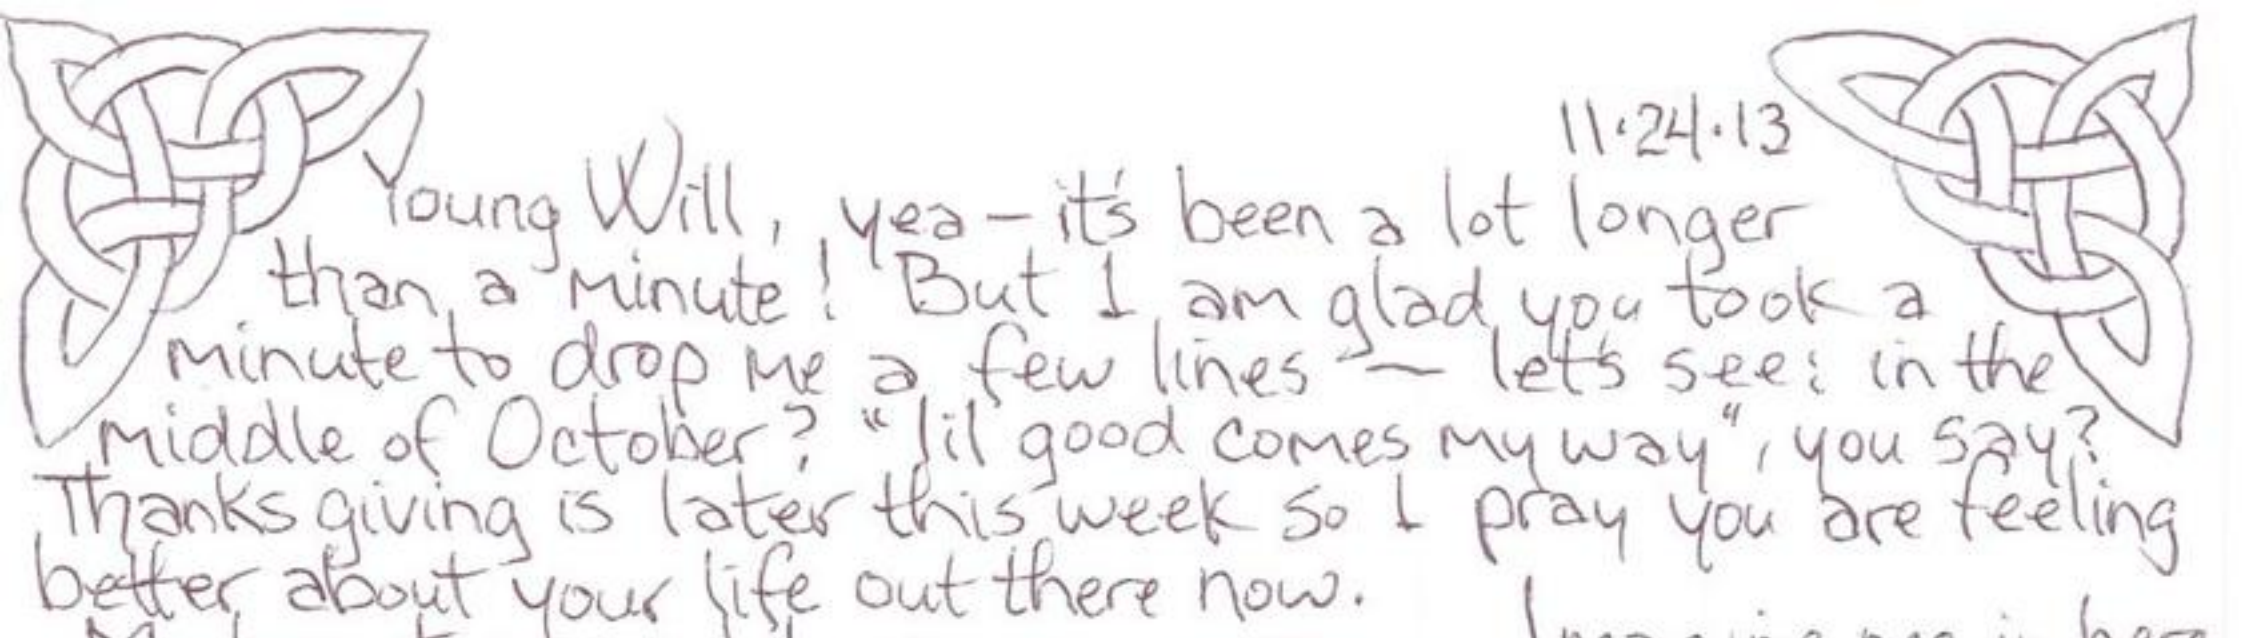 11·24·13
Young Will, yea – it's been a lot longer
than a minute! But I am glad you took a
minute to drop me a few lines — let's see: in the
middle of October? "lil good comes my way", you say?
Thanksgiving is later this week so I pray you are feeling
better about your life out there now.